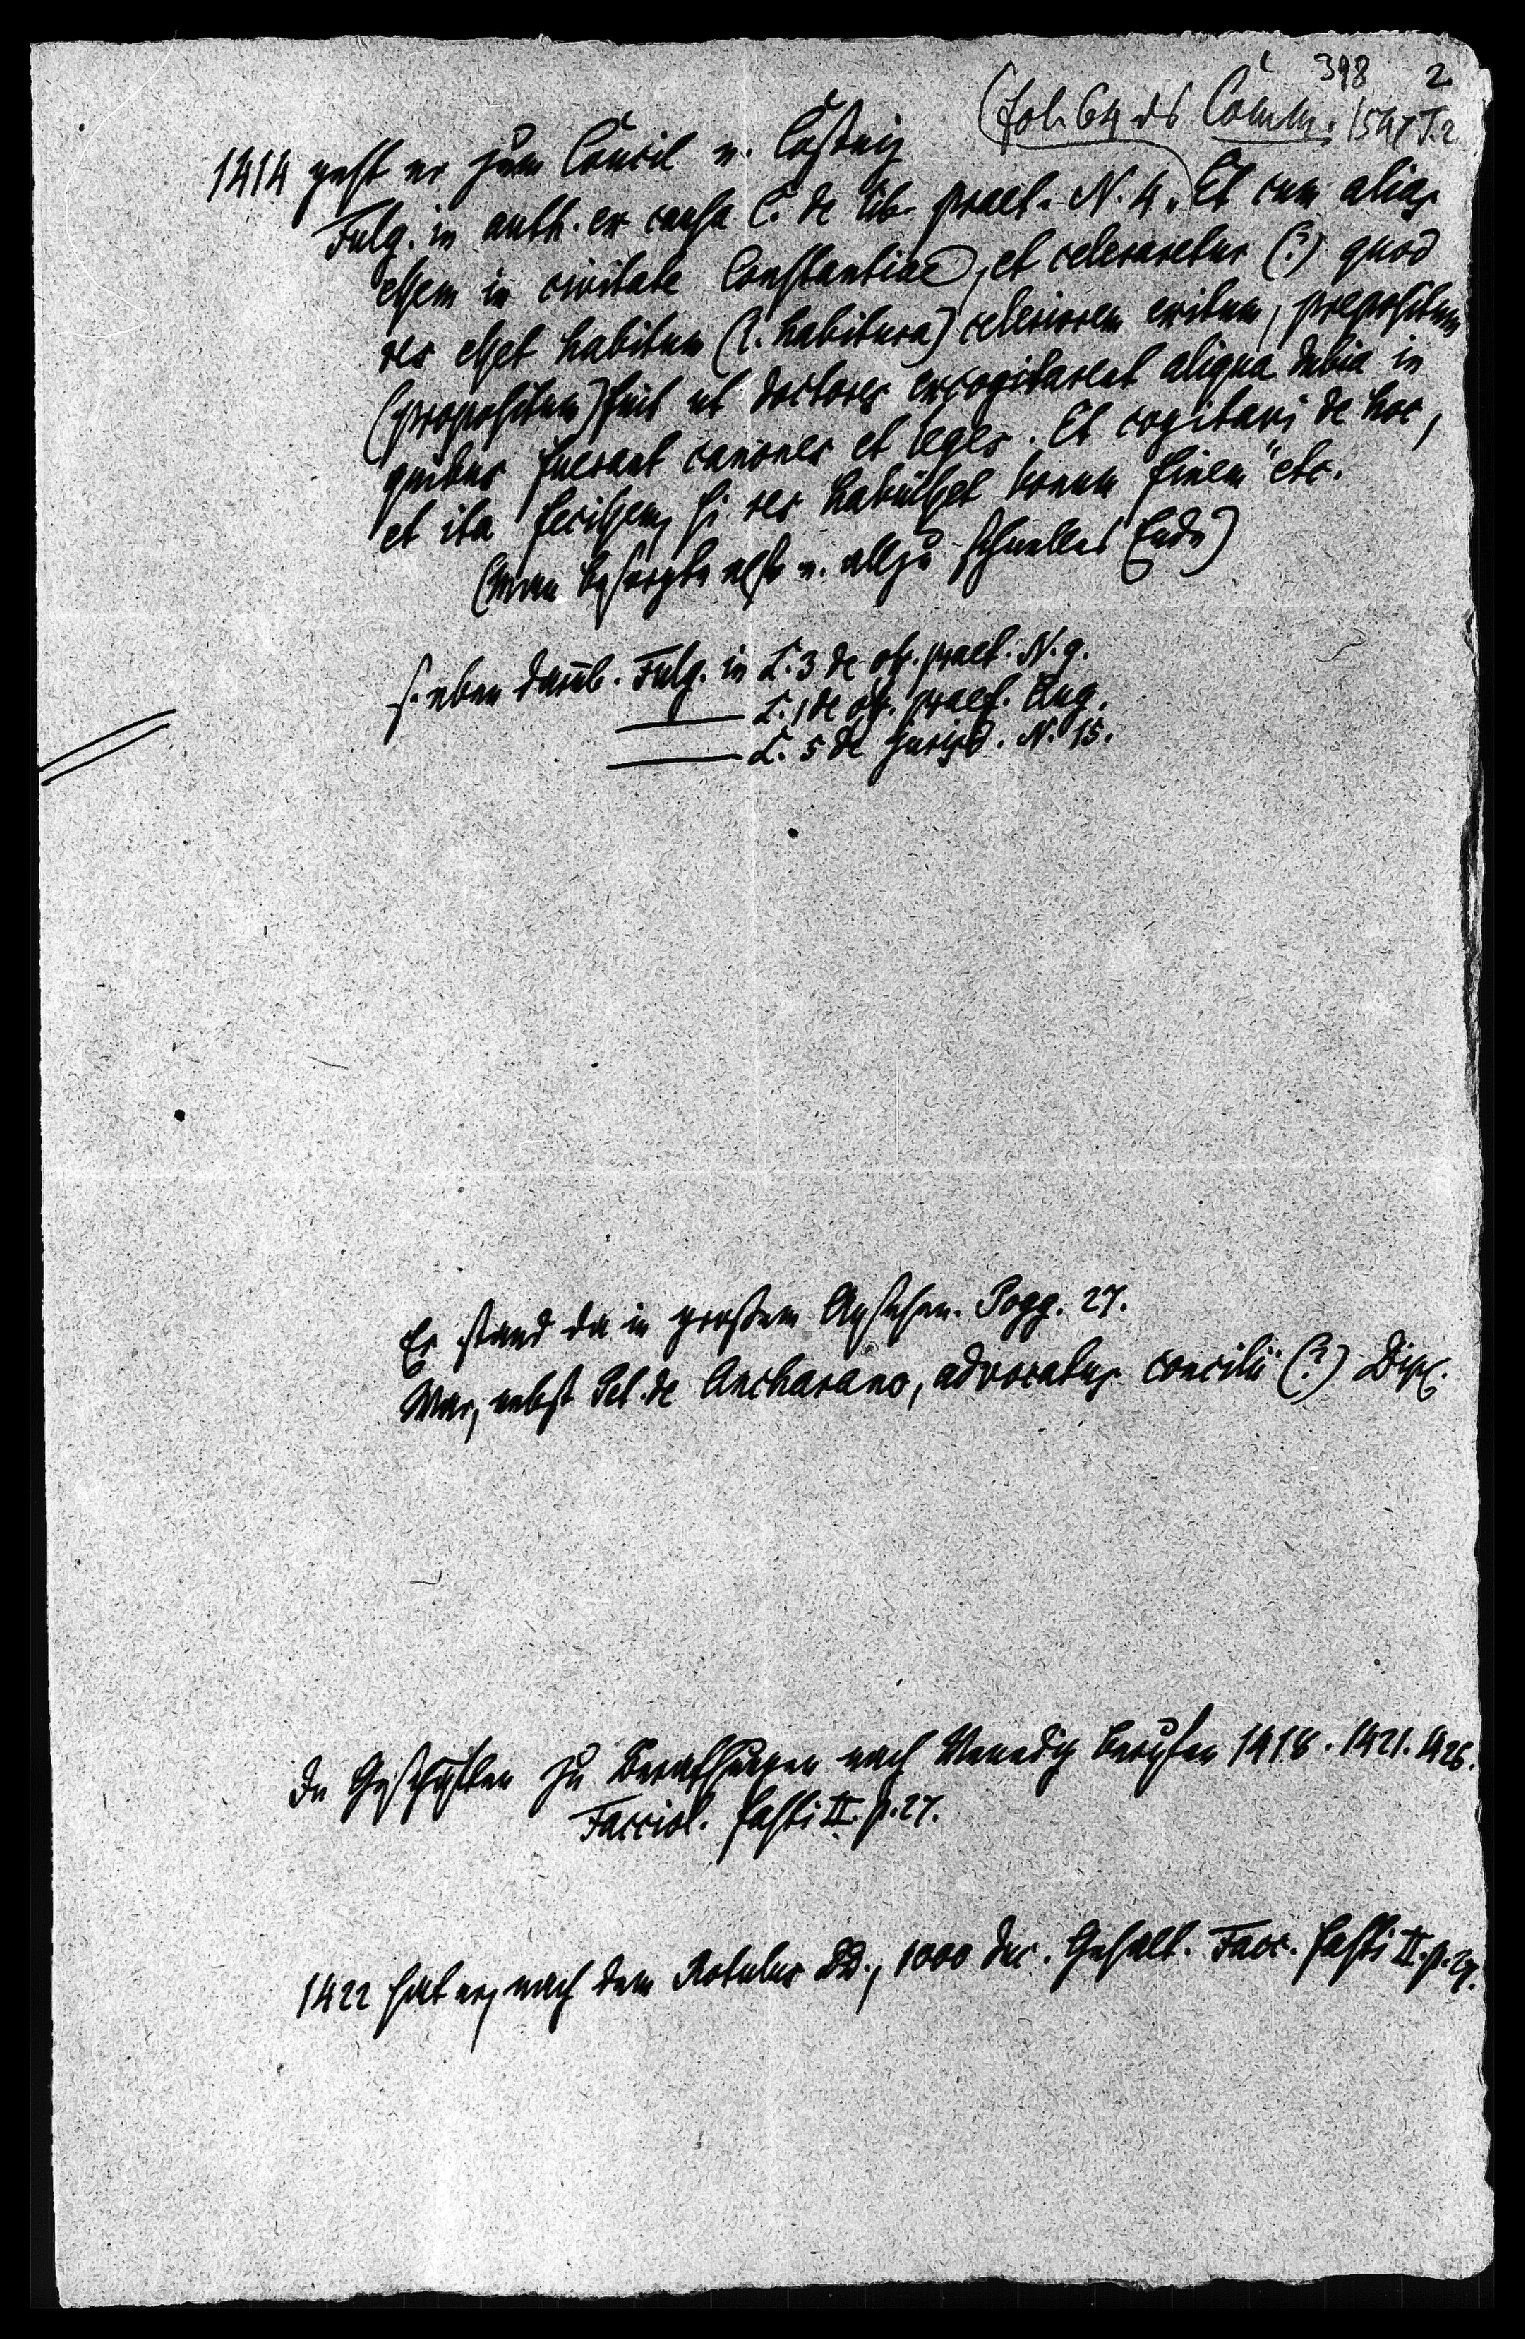 398 2
(fol. 64 ds Comm. 1547 T. 2
1414 geht er zum Concil n. Costniz
Fulg. in auth. ex causa C. de lib. praet. N. 4. „Et cum alias
essem in civitate Constantiae, et celeraretur (?) quod
res esset habitum (l. habitura) celeriorem exitum, prepositum
(propositum) fuit ut doctores excogitarent aliqua dubia in
quibus fuerant canones et leges. Et cogitavi de hoc,
et ita fecissem, si res habuisset bonum finem" etc.
(man besorgte also e. allzu schnelles Ende)
s. eben darüb. Fulg. in L. 3 de off. praet. N. 9.
——— L. 1 de off. praef. Aug.
——— L. 5 de jurisd. N. 15.
Er stand da in großem Ansehen. Pogg. 27.
War, nebst Pet. de Ancharano, advocatus concilii (?) Dipl.
In Geschäften zu Berathungen nach Venedig berufen 1418. 1421. 1426.
Facciol. fasti II. p. 27.
1422 hat er, nach dem Rotulus DD., 1000 duc. Gehalt. Facc. fasti II. p. 29.